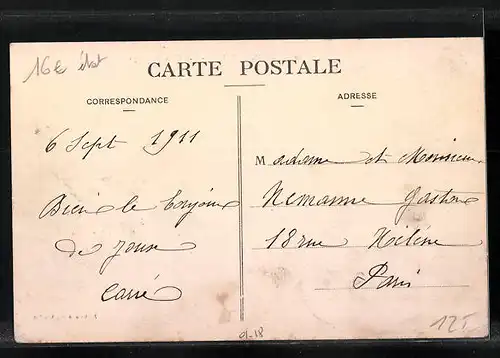 16e
CARTE POSTALE
CORRESPONDANCE
ADRESSE
6 Sept 1911
Madame et Monsieur
Bien le bonjour
Gaston
de
18 rue Hélène
Carré
Paris
9-18
12F